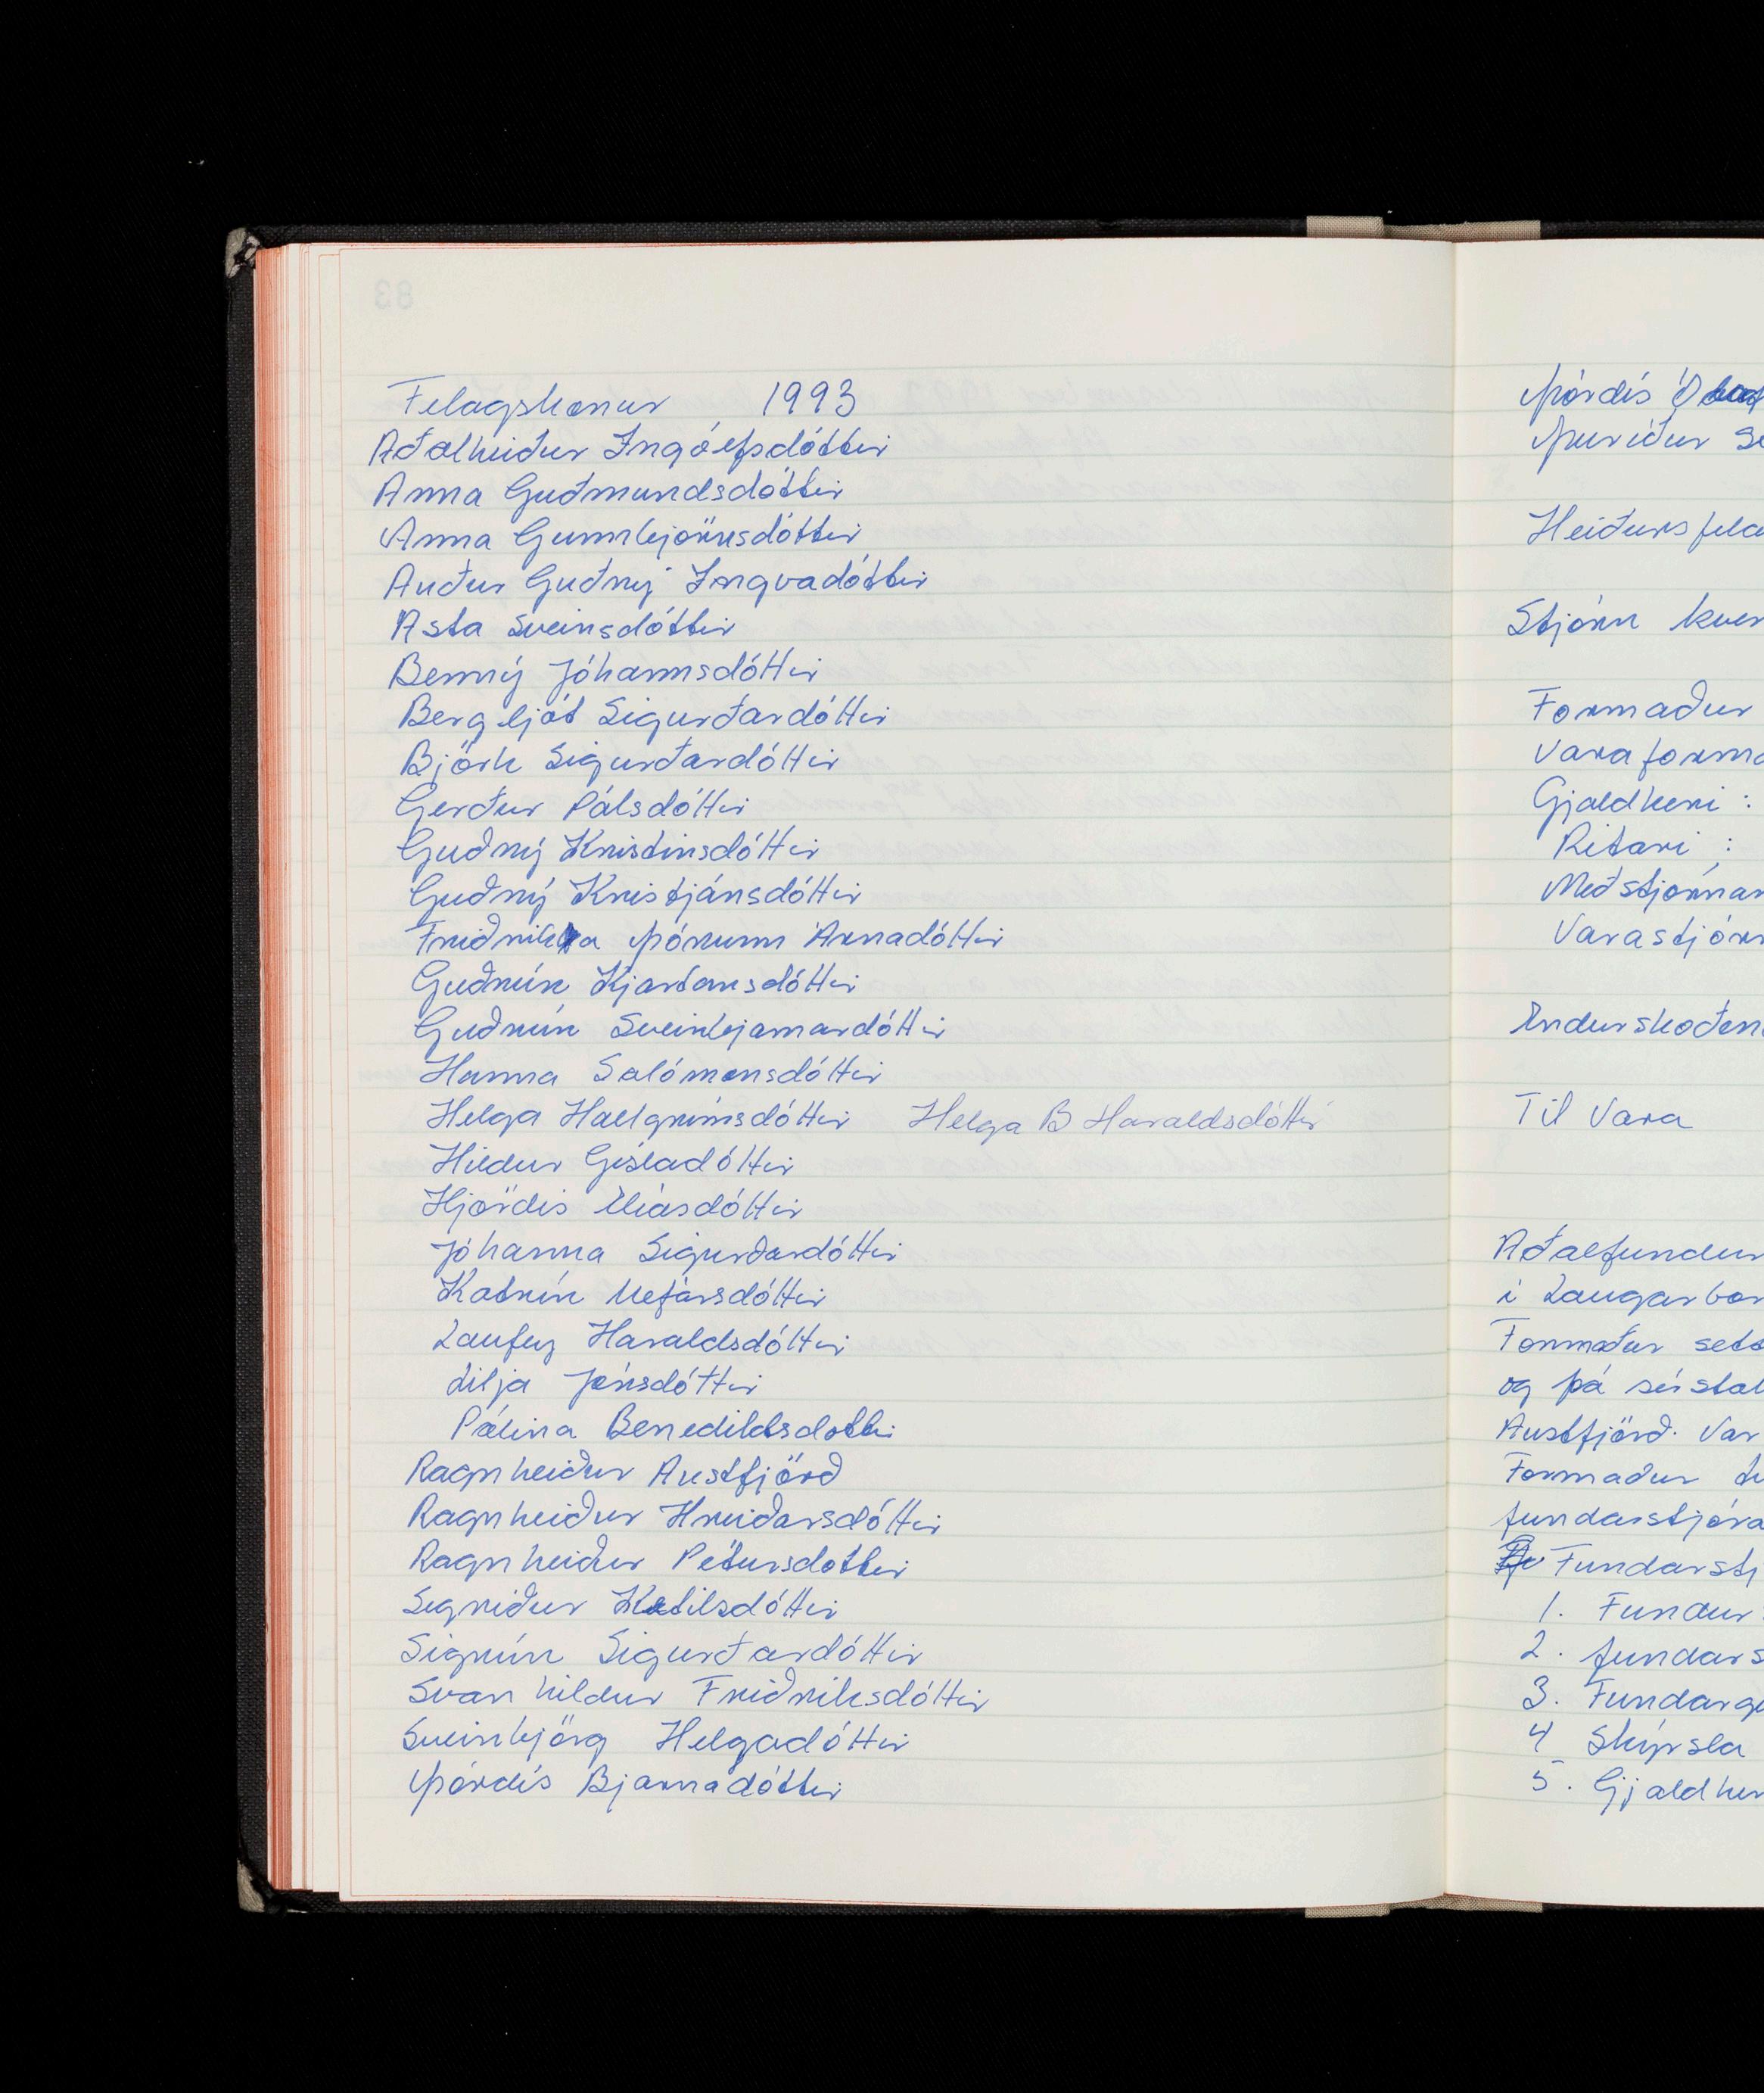 83
Felagskonur 1993
Aðalheiður Ingólfsdóttir
Anna Guðmundsdóttir
Anna Gunnbjörnsdóttir
Auður Guðný Ingvadóttir
Ásta Sveinsdóttir
Benný Jóhannsdóttir
Bergljót Sigurðardóttir
Björk Sigurðardóttir
Gerður Pálsdóttir
Guðný Kristinsdóttir
Guðný Kristjánsdóttir
Friðrikka Þórunn Árnadóttir
Guðrún Kjartansdóttir
Guðrún Sveinbjarnardóttir
Hanna Salómonsdóttir
Helga Hallgrímsdóttir Helga B Haraldsdóttir
Hildur Gísladóttir
Hjördís Elíasdóttir
Jóhanna Sigurðardóttir
Katrín Úlfarsdóttir
Laufey Haraldsdóttir
Lilja Jónsdóttir
Pálína Benediktsdottir
Ragnheiður Austfjörð
Ragnheiður Hreiðarsdóttir
Ragnheiður Pétursdottir
Sigríður Ketilsdóttir
Sigrún Sigurðardóttir
Svanhildur Friðriksdóttir
Sveinbjörg Helgadóttir
Þórdís Bjarnadóttir
Þórdís
Þuríður
Heiðursfela
Stjórn kven
Formaður
Varaforma
Gjaldkeri :
Ritari :
Meðstjórnar
Varastjórn
Endurskoðen
Til Vara
Aðalfundur
í Laugarbor
Formaður sett
og þá sérstak
Austfjörð. Var
Formaður
fundarstjóra
Fundarstj
1. Fundur
2. fundars
3. Fundarge
4 Skýrsla
5. Gjaldker